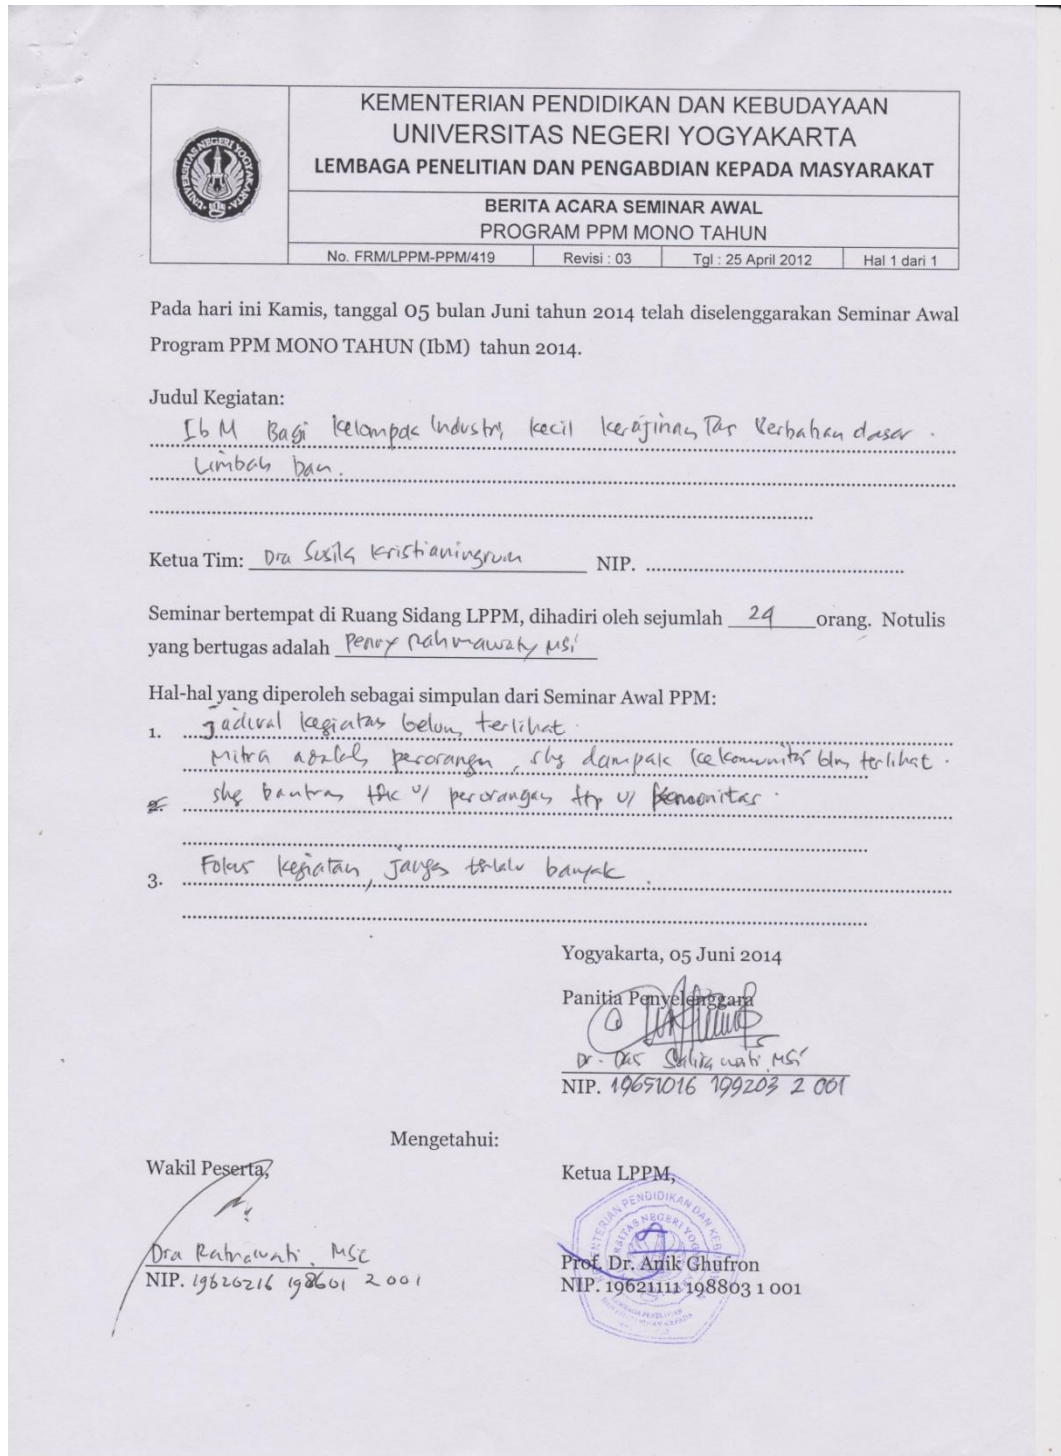 KEMENTERIAN PENDIDIKAN DAN KEBUDAYAAN
UNIVERSITAS NEGERI YOGYAKARTA
LEMBAGA PENELITIAN DAN PENGABDIAN KEPADA MASYARAKAT
UNIVERSITAS NEGERI YOGYAKARTA
BERITA ACARA SEMINAR AWAL
PROGRAM PPM MONO TAHUN
No. FRM/LPPM-PPM/419 Revisi : 03 Tgl : 25 April 2012 Hal 1 dari 1
Pada hari ini Kamis, tanggal 05 bulan Juni tahun 2014 telah diselenggarakan Seminar Awal
Program PPM MONO TAHUN (IbM) tahun 2014.
Judul Kegiatan:
IbM Bagi Kelompok Industri kecil kerajinan Tas Berbahan dasar
Limbah ban.
Ketua Tim: Dra Susila Kristianingrum NIP.
Seminar bertempat di Ruang Sidang LPPM, dihadiri oleh sejumlah 24 orang. Notulis
yang bertugas adalah Penny Rahmawaty MSi
Hal-hal yang diperoleh sebagai simpulan dari Seminar Awal PPM:
1. Jadwal kegiatan belum terlihat.
Mitra adalah perorangan, shg dampak ke komunitas blm terlihat.
2. shg bantuan tdk u/ perorangan ttp u/ komunitas.
3. Fokus kegiatan, jangan terlalu banyak.
Yogyakarta, 05 Juni 2014
Panitia Penyelenggara
Dr. Das Salirawati, MSi
NIP. 19651016 199203 2 001
Mengetahui:
Wakil Peserta,
Ketua LPPM,
Dra Ratnawati, MSc
NIP. 19620216 198601 2 001
Prof. Dr. Anik Ghufron
NIP. 19621111 198803 1 001